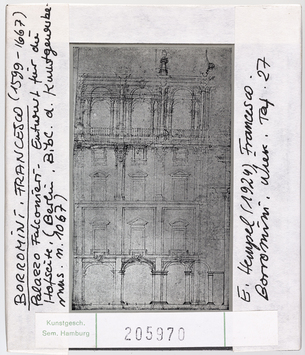 BORROMINI, FRANCESCO (1599-1667)
Palazzo Falconieri. Entwurf für die
Hofseite, (Berlin, Bibl. d. Kunstgewerbe-
mus. n. 1067)
E. Hempel (1924) Francesco
Borromini, Wien. Taf. 27
Kunstgesch.
Sem. Hamburg
205970